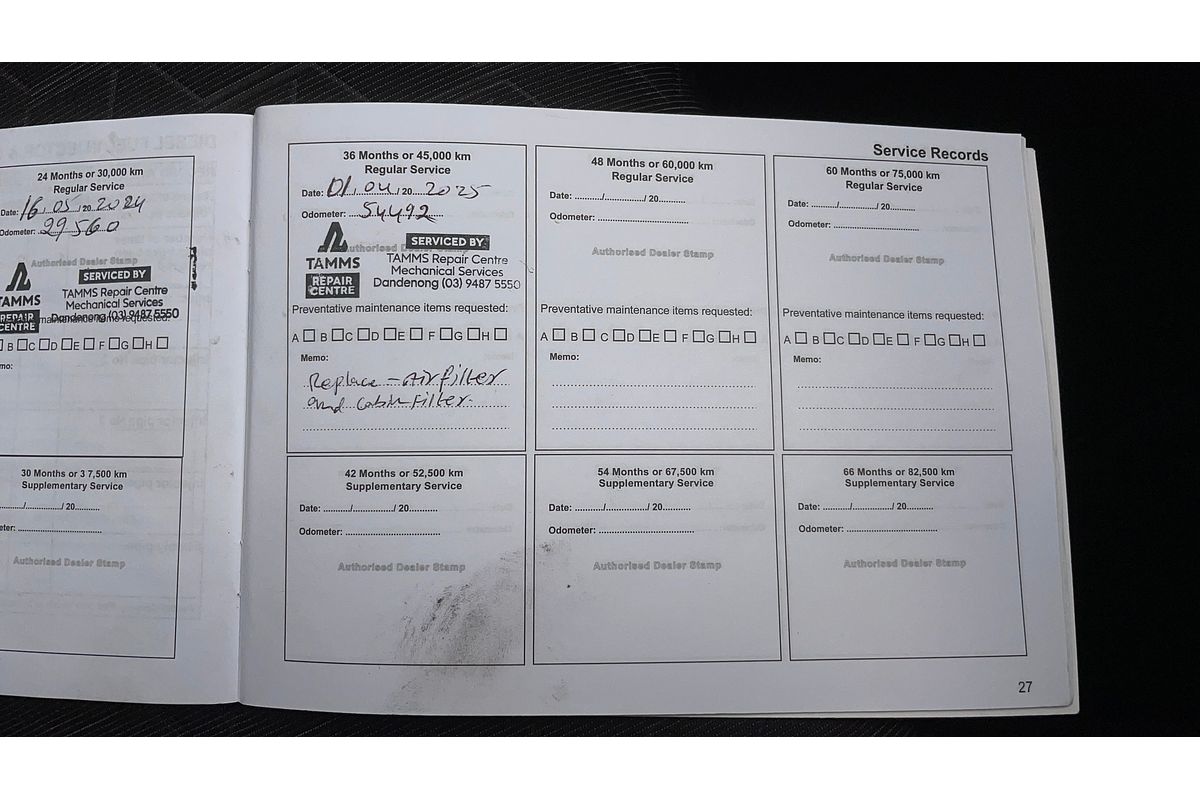 24 Months or 30,000 km
Regular Service
Date: 16, 05, 20 2024
Odometer: 29560
Authorised Dealer Stamp
TAMMS
REPAIR
CENTRE
SERVICED BY
TAMMS Repair Centre
Mechanical Services
Dandenong (03) 9487 5550
maintenance items requested:
B C D E F G H
mo:
30 Months or 3 7,500 km
Supplementary Service
/ / 20
eter:
Authorised Dealer Stamp
Service Records
36 Months or 45,000 km
Regular Service
Date: 01, 04 / 20 2025
Odometer: 54492
Authorised Dealer
TAMMS
REPAIR
CENTRE
SERVICED BY
TAMMS Repair Centre
Mechanical Services
Dandenong (03) 9487 5550
Preventative maintenance items requested:
A B C D E F G H
Memo:
Replace - Air filter
and cabin filter.
48 Months or 60,000 km
Regular Service
Date: ........./................/ 20..........
Odometer: .................................
Authorised Dealer Stamp
Preventative maintenance items requested:
A B C D E F G H
Memo:
60 Months or 75,000 km
Regular Service
Date: ........./................/ 20..........
Odometer: .................................
Authorised Dealer Stamp
Preventative maintenance items requested:
A B C D E F G H
Memo:
42 Months or 52,500 km
Supplementary Service
Date: ........./................/ 20..........
Odometer: .................................
Authorised Dealer Stamp
54 Months or 67,500 km
Supplementary Service
Date: ........./................/ 20..........
Odometer: .................................
Authorised Dealer Stamp
66 Months or 82,500 km
Supplementary Service
Date: ........./................/ 20..........
Odometer: .................................
Authorised Dealer Stamp
27